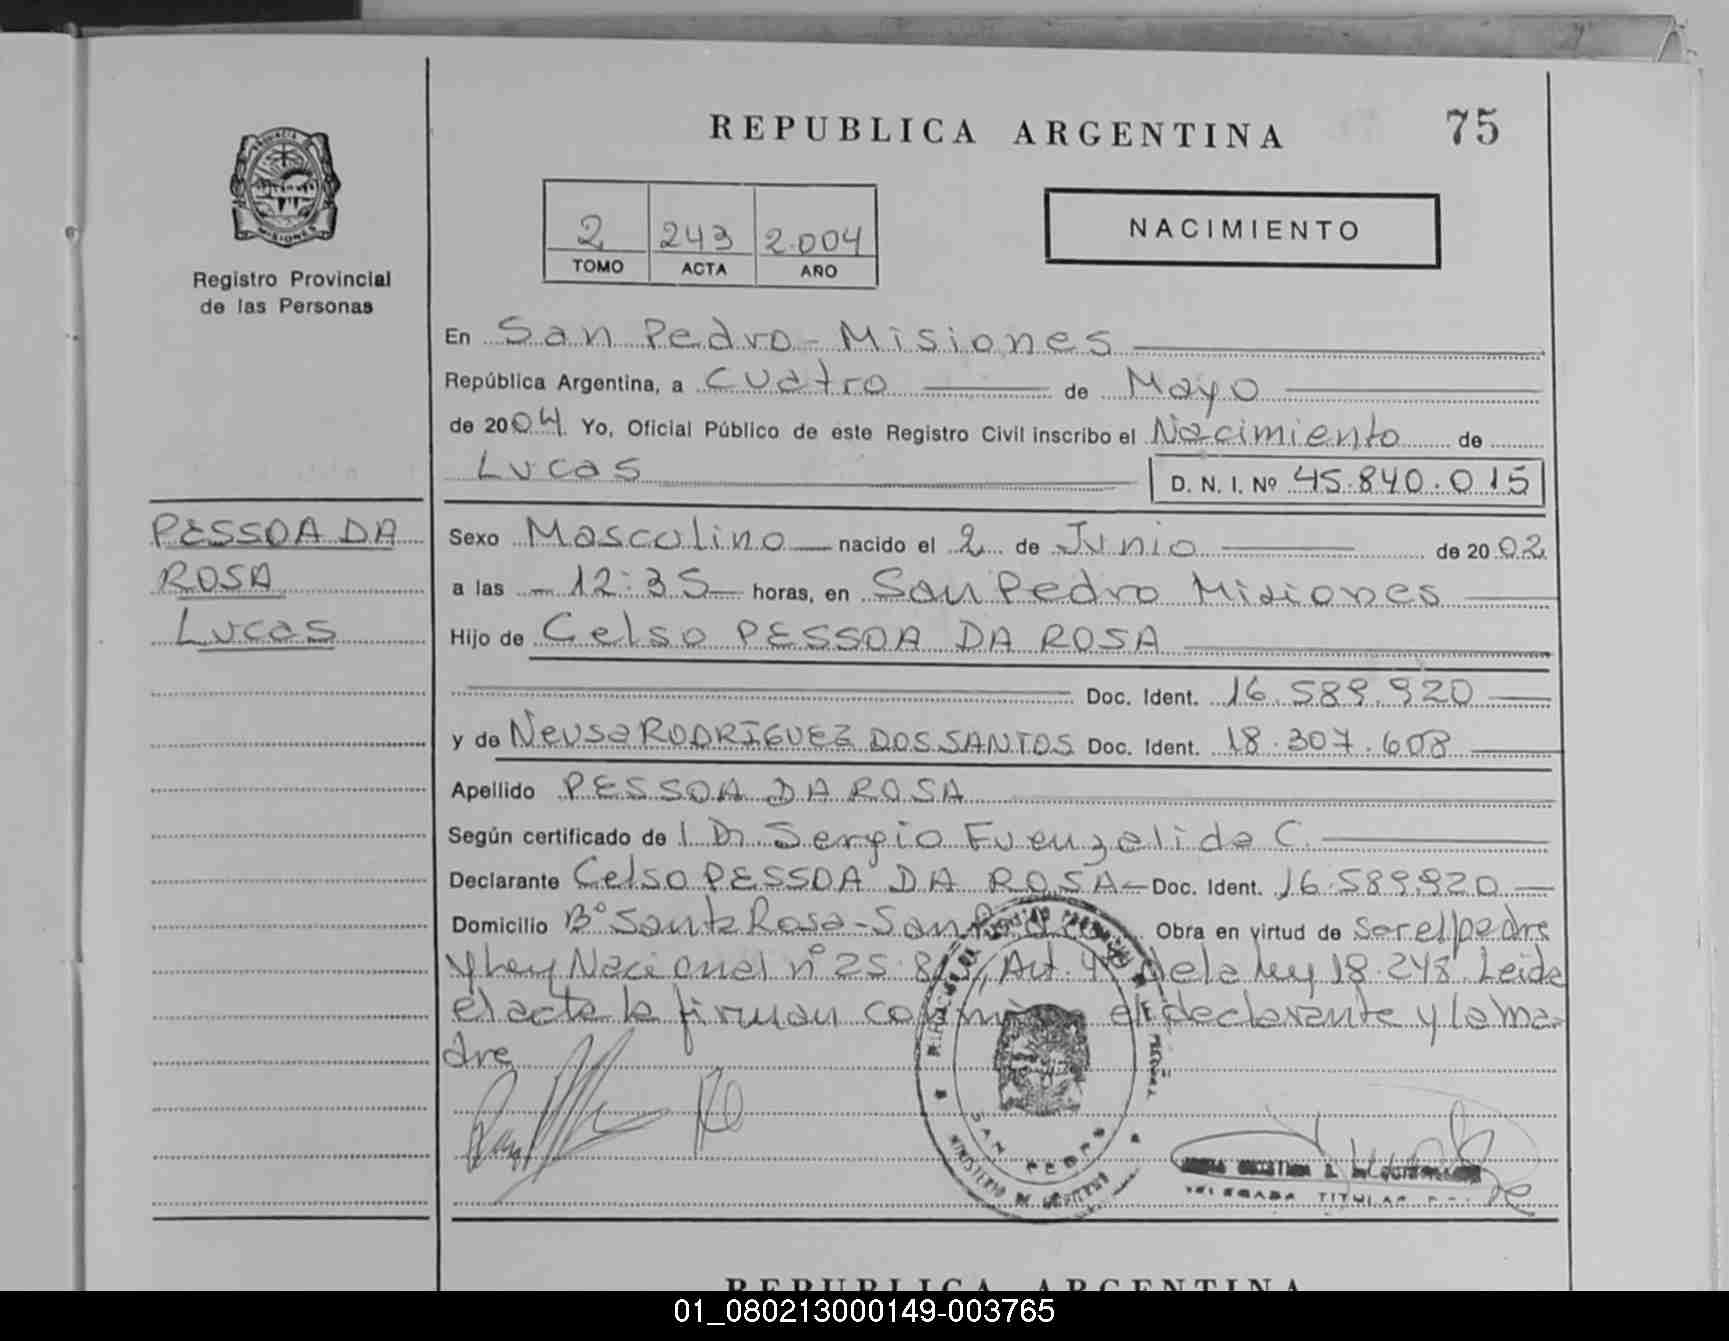 REPUBLICA ARGENTINA 75
PROVINCIA
MISIONES
Registro Provincial
de las Personas
2 243 2.004
TOMO ACTA AÑO
NACIMIENTO
En San Pedro - Misiones
República Argentina, a cuatro de Mayo
de 2004 Yo, Oficial Público de este Registro Civil inscribo el Nacimiento de
Lucas
D. N. I. Nº 45.840.015
PESSOA DA
ROSA
Lucas
Sexo Masculino nacido el 2 de Junio de 2002
a las - 12:35 - horas, en San Pedro Misiones
Hijo de Celso PESSOA DA ROSA
Doc. Ident. 16.589.920
y de Neusa RODRIGUEZ DOS SANTOS Doc. Ident. 18.307.608
Apellido PESSOA DA ROSA
Según certificado de l Dr. Sergio Fuenzalida C.
Declarante Celso PESSOA DA ROSA - Doc. Ident. 16.589.920
Domicilio Bº Santa Rosa - San Obra en virtud de ser el padre
y Ley Nacional nº 25. Art. 4 de la ley 18.248. Leida
el acta la firman el declarante y la ma-
dre
SAN PEDRO
MINISTERIO DE GOBIERNO
TITULAR
REPUBLICA ARGENTINA
01_080213000149-003765